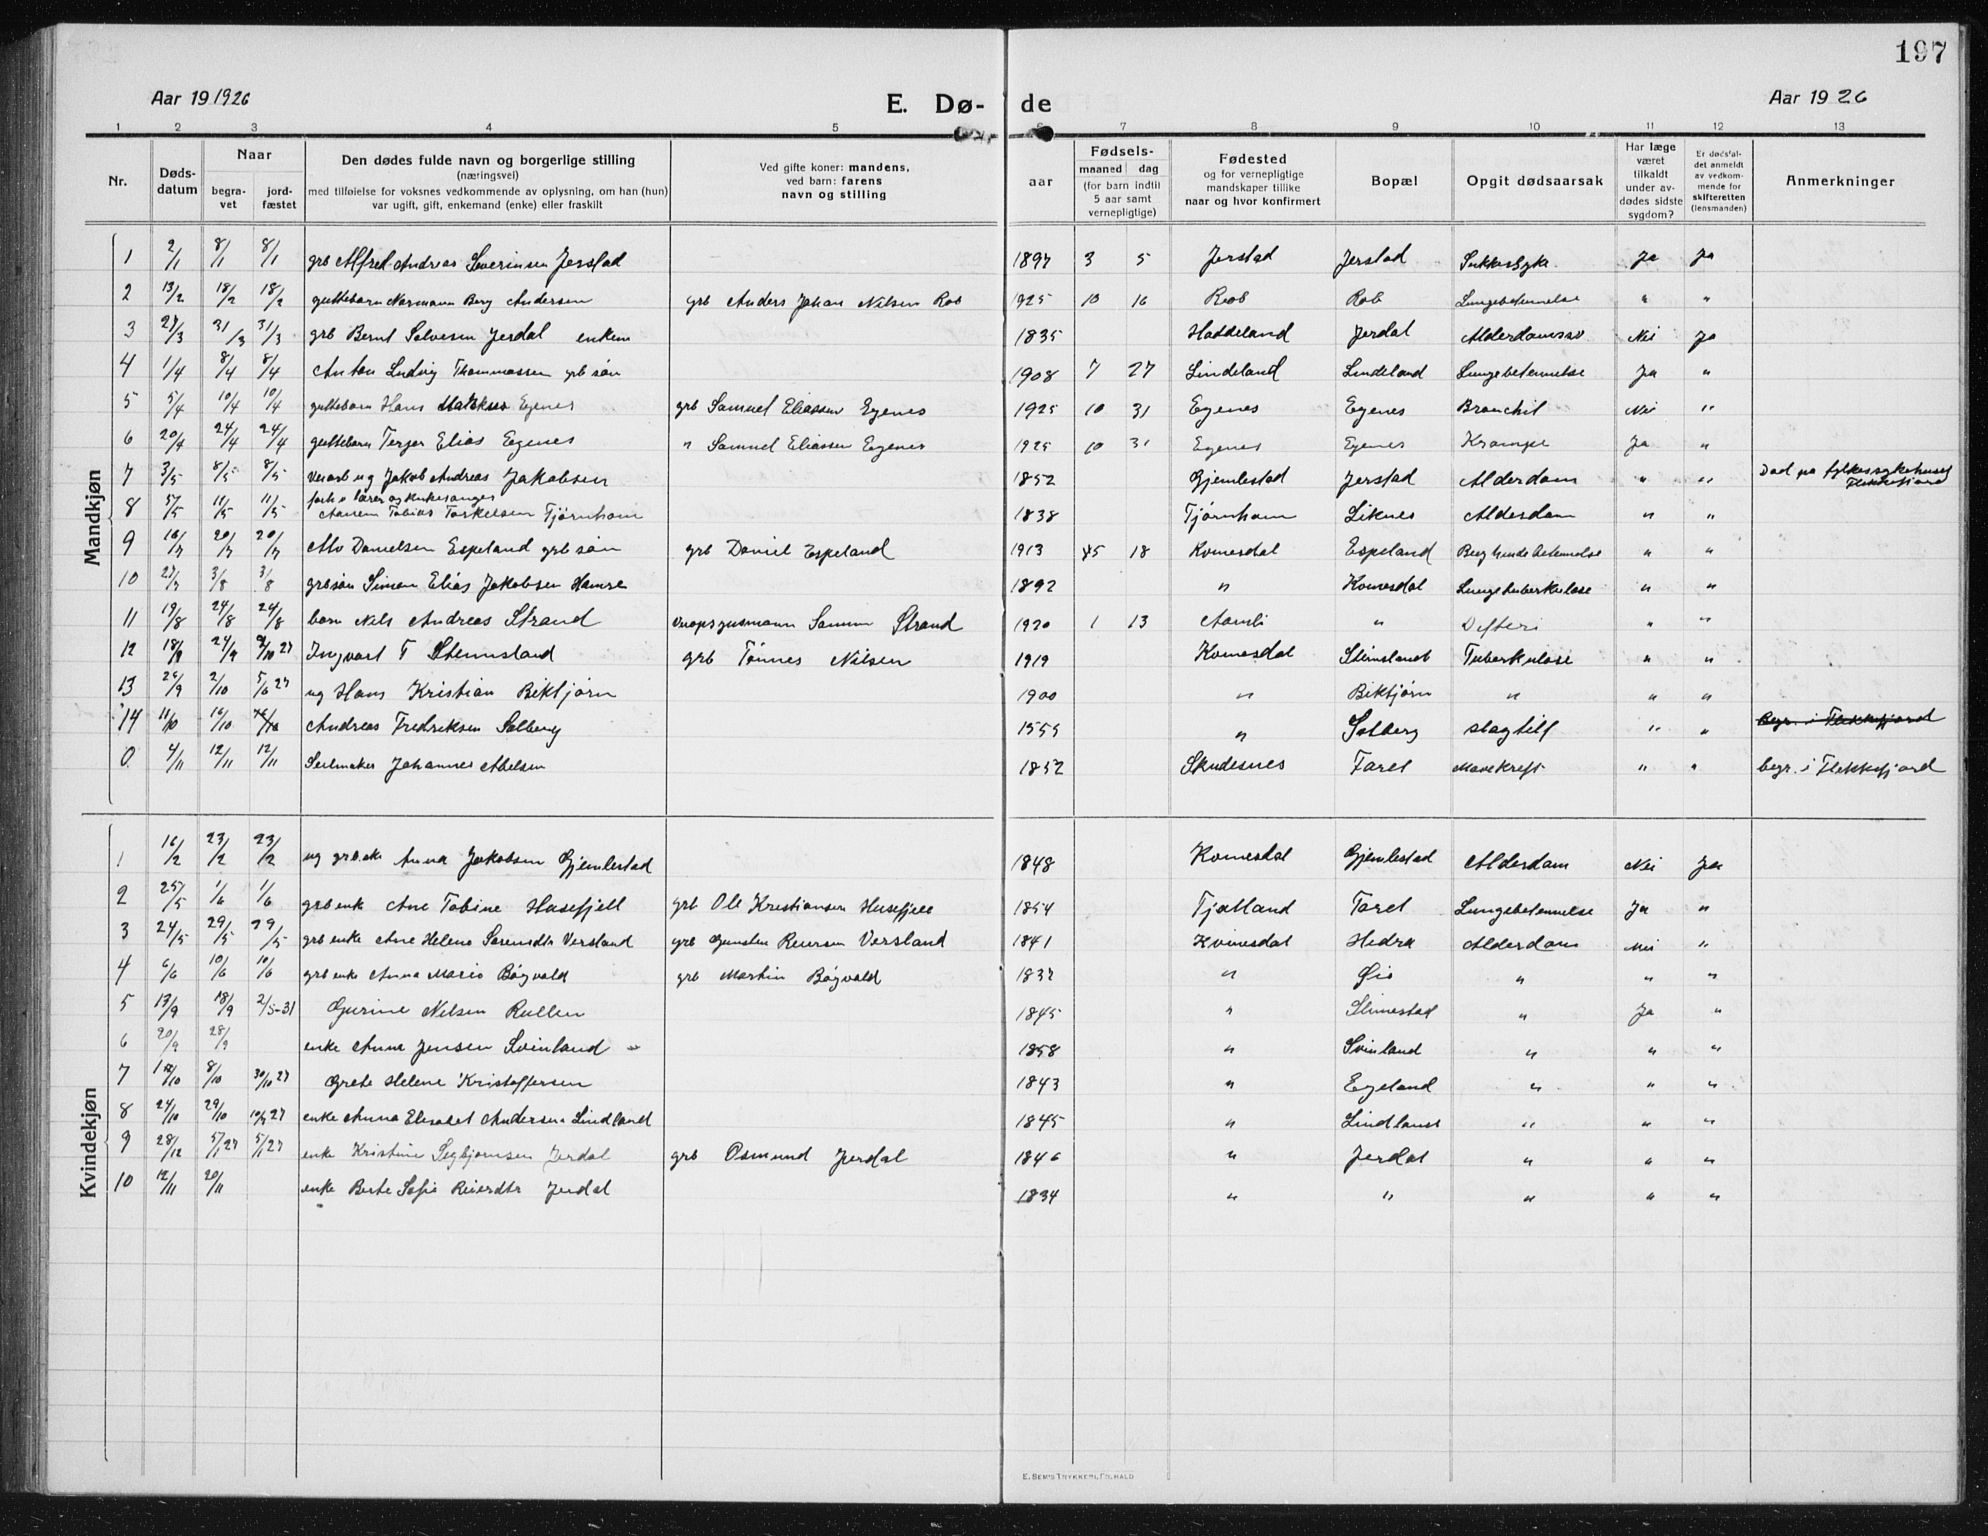 197
Aar 19 1926 E. Dø- de Aar 19 26
1 2 3 4 5 6 7 8 9 10 11 12 13
Nr. Døds-datum Naar begra-vet jord-fæstet Den dødes fulde navn og borgerlige stilling (næringsvei) med tilføielse for voksnes vedkommende av oplysning, om han (hun) var ugift, gift, enkemand (enke) eller fraskilt Ved gifte koner: mandens, ved barn: farens navn og stilling aar Fødsels- maaned dag (for barn indtil 5 aar samt vernepligtige) Fødested og for vernepligtige mandskaper tillike naar og hvor konfirmert Bopæl Opgit dødsaarsak Har læge været tilkaldt under av-dødes sidste sygdom? Er dødsfal-det anmeldt av vedkom-mende for skifteretten (lensmanden) Anmerkninger
Mandkjøn
1 2/1 8/1 8/1 grb Alfred Andreas Severinsen Jerstad 1897 3 5 Jerstad Jerstad Sukkersyke Ja Ja
2 13/2 18/2 18/2 guttebarn Normann Berg Andersen grb Anders Johan Nilsen Rob 1925 10 16 Rob Rob Lungebetennelse " "
3 27/3 31/3 31/3 grb Bernt Salvesen Jerdal enkem 1835 Haddeland Jerdal Alderdomssv. Nei Ja
4 1/4 8/4 8/4 Anton Ludvig Thommassen grb søn 1908 7 27 Lindeland Lindeland Lungebetennelse Ja "
5 5/4 10/4 10/4 guttebarn Hans Egenes grb Samuel Eliassen Egenes 1925 10 31 Egenes Egenes Bronchit Nei "
6 20/4 24/4 24/4 guttebarn Terjer Elias Egenes " Samuel Eliassen Egenes 1925 10 31 Egenes Egenes Krampe Ja "
7 3/5 8/5 8/5 ug Jakob Andreas Jakobsen 1852 Gjemlestad Jerstad Alderdom " " Død på fylkessykehuset Flekkefjord
8 5/5 11/5 11/5 forh. lærer og kirkesanger Tobias Torkelsen Tjørnhom 1838 Tjørnhom Liknes Alderdom " "
9 16/7 20/7 20/7 Alv Danielsen Espeland grb søn grb Daniel Espeland 1913 18 Kvinesdal Espeland betennelse " "
10 27/7 3/8 3/8 grb søn Simon Elias Jakobsen Hamre 1892 " Kvinesdal Lungetuberkulose " "
11 19/8 24/8 24/8 barn Nils Andreas Strand Strand 1920 1 13 Aamli " Difteri " "
12 18/9 24/9 2/10 27 Ingvart T Stemsland grb Tønnes Nilsen 1919 Kvinesdal Stemsland Tuberkulose " "
13 25/9 2/10 5/6 27 ug Hans Kristian Biktjørn 1900 " Biktjørn " " "
14 11/10 16/10 16/10 Andreas Fredriksen Solberg 1555 " Solberg slagtilf " " begr. i Flekkefjord
0 4/11 12/11 12/11 Seilmaker Johannes Abelsen 1852 Skudesnes Faret Mavekreft " " begr. i Flekkefjord
Kvindekjøn
1 16/2 23/2 23/2 ug grb.enke Anna Jakobsen Gjemlestad 1848 Kvinesdal Gjemlestad Alderdom Nei Ja
2 25/5 1/6 1/6 grb enke Ane Tobine Husefjell grb Ole Kristiansen Husefjell 1854 Tjotland Faret Lungebetennelse Ja "
3 24/5 29/5 29/5 grb enke Ane Helene Versland grb Gunsten Reiersen Versland 1841 Kvinesdal Hidra Alderdom Nei "
4 6/6 10/6 10/6 grb enke Anna Marie Bøgvald grb Martin Bøgvald 1837 " Øie " " "
5 13/9 18/9 2/5-31 Gurine Nilsen Rullen 1845 " Slimestad " Ja "
6 20/9 28/9 enke Anna Jensen Svinland 1858 " Svinland " " "
7 /10 8/10 30/10 27 Grete Helene Kristoffersen 1843 " Egeland " " "
8 24/10 29/10 27 enke Anna Elisabet Andersen Lindland 1845 " Lindland " " "
9 28/12 5/1 27 5/1 27 enke Kristine Segbjørnsen Jerdal grb Osmund Jerdal 1846 " Jerdal " " "
10 12/11 20/11 enke Berte Sofie Reiersdtr Jerdal 1834 " " " " "
E. SEM'S TRYKKERI, FR.HALD